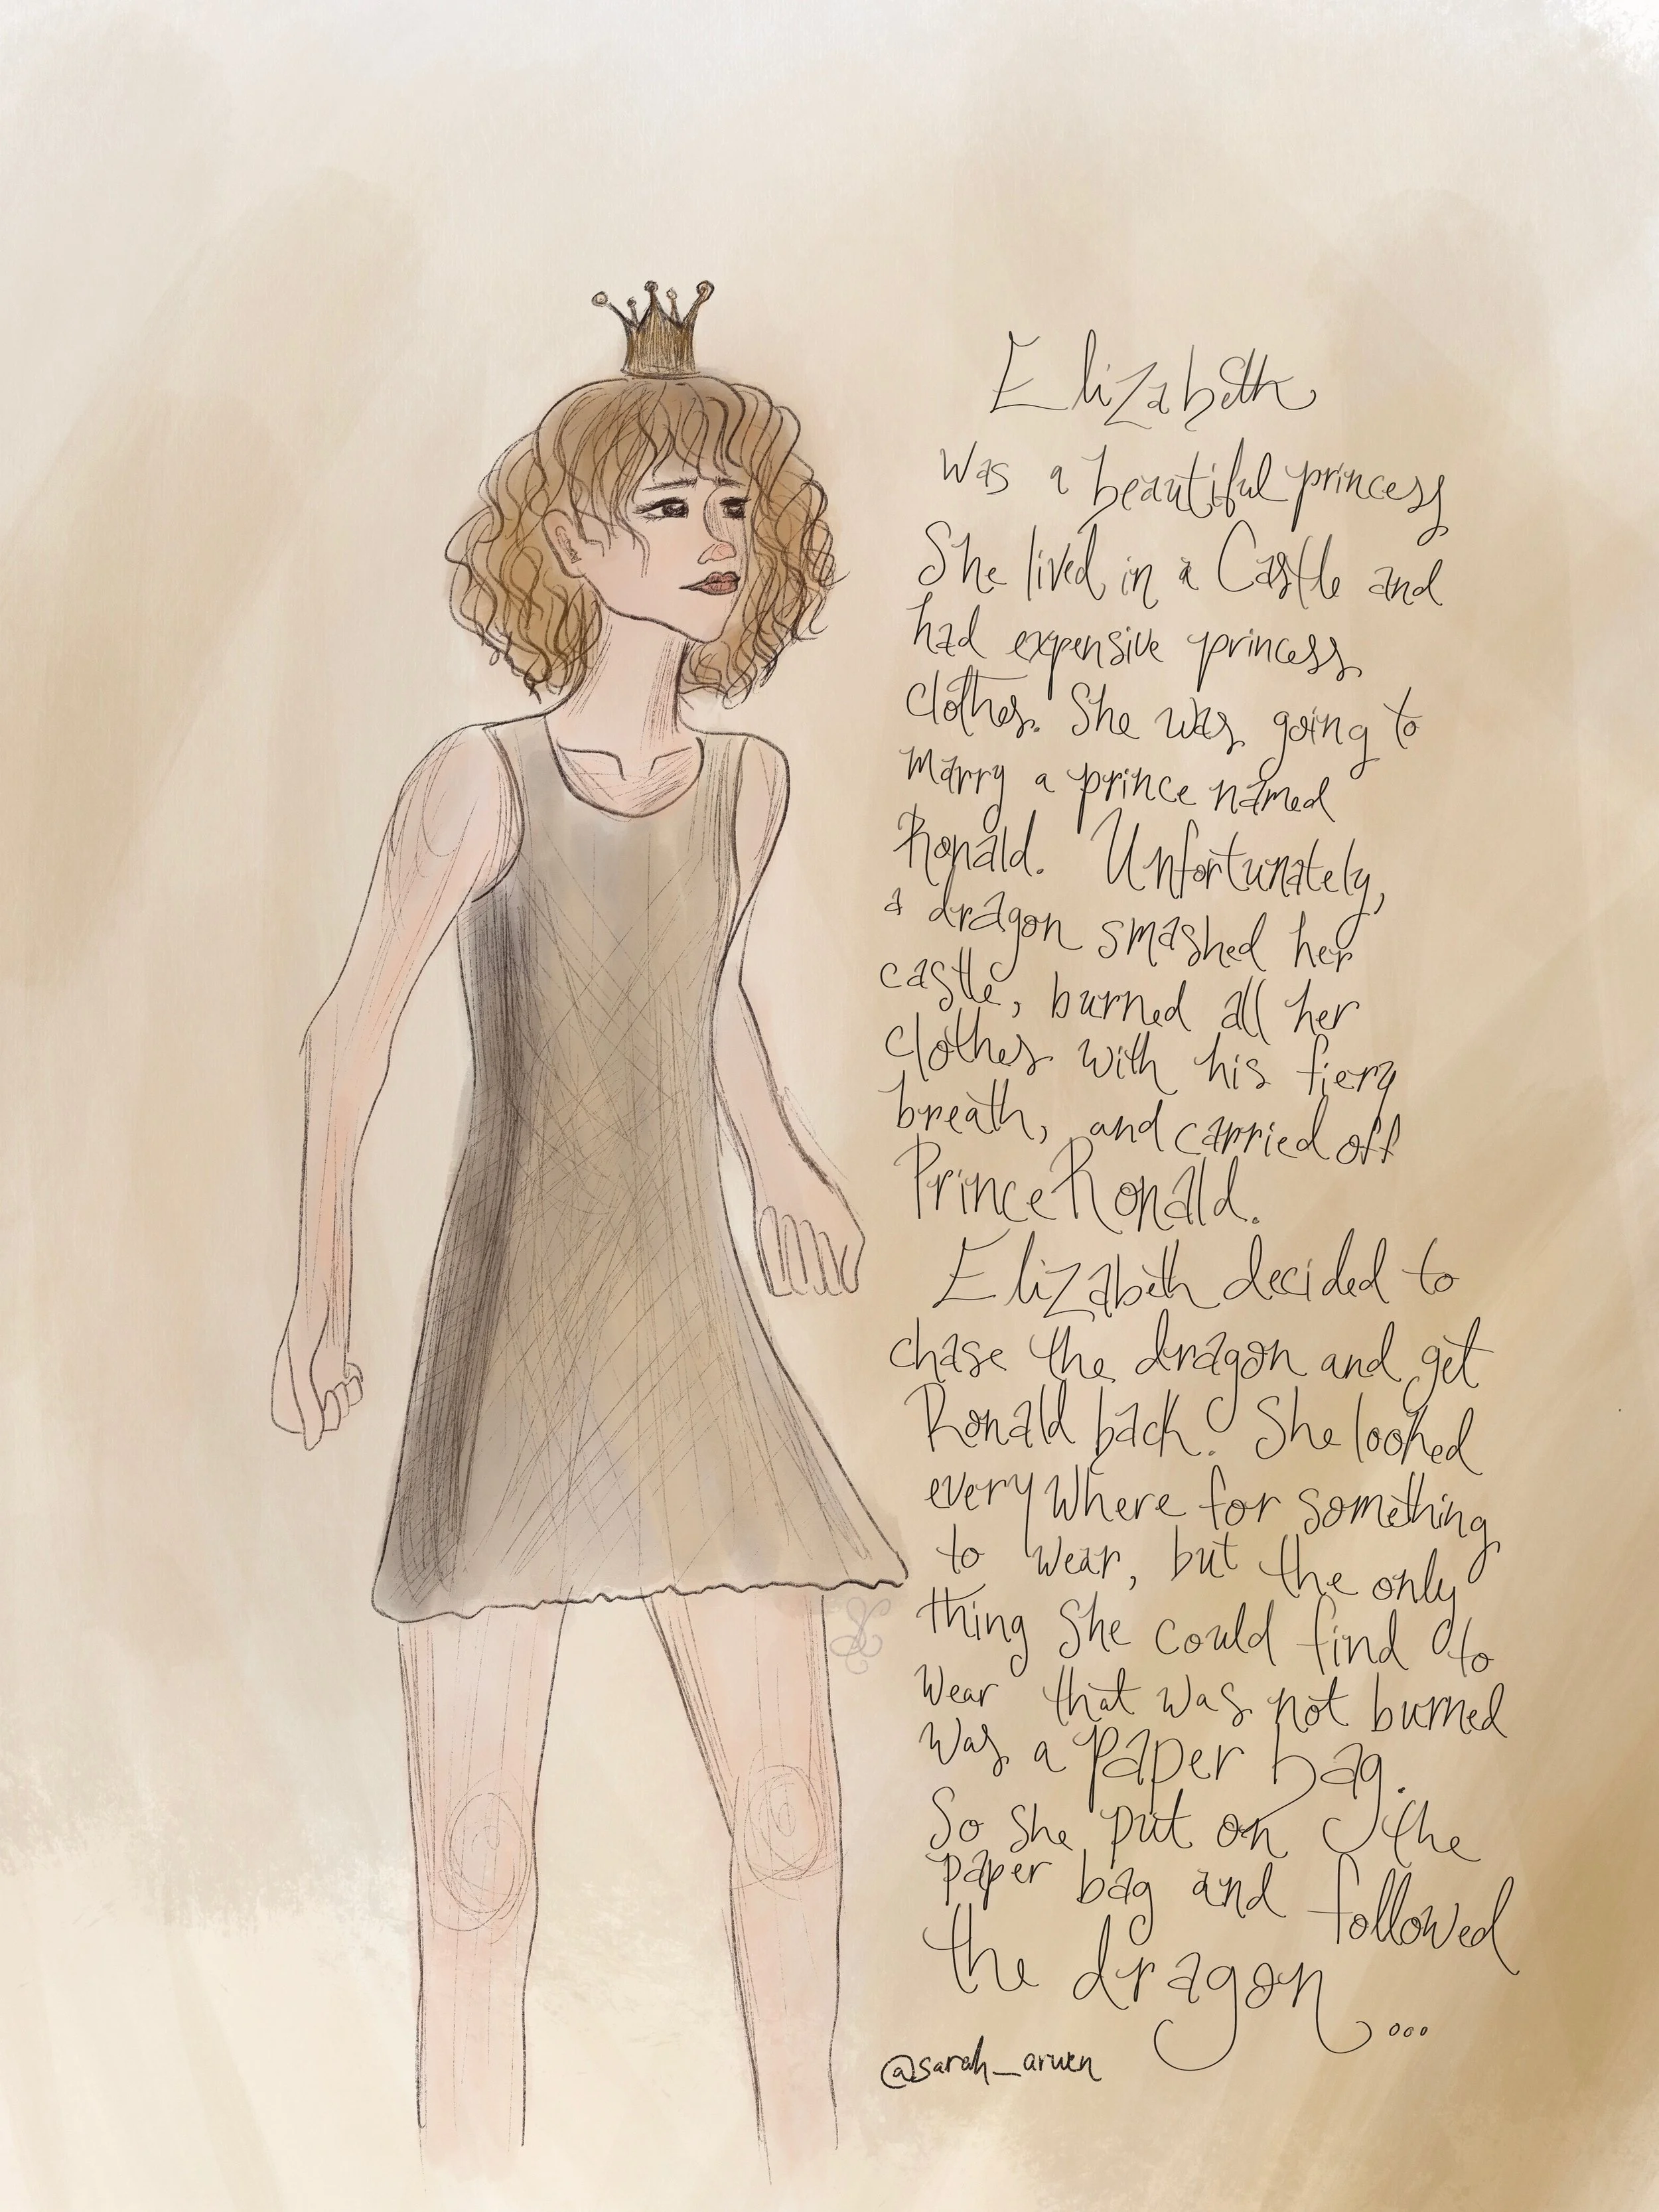 Elizabeth
was a beautiful princess
She lived in a Castle and
had expensive princess
clothes. She was going to
marry a prince named
Ronald. Unfortunately,
a dragon smashed her
castle, burned all her
clothes with his fiery
breath, and carried off
Prince Ronald.
Elizabeth decided to
chase the dragon and get
Ronald back. She looked
everywhere for something
to wear, but the only
thing she could find to
wear that was not burned
was a paper bag.
So she put on the
paper bag and followed
the dragon...
@sarah_arwen